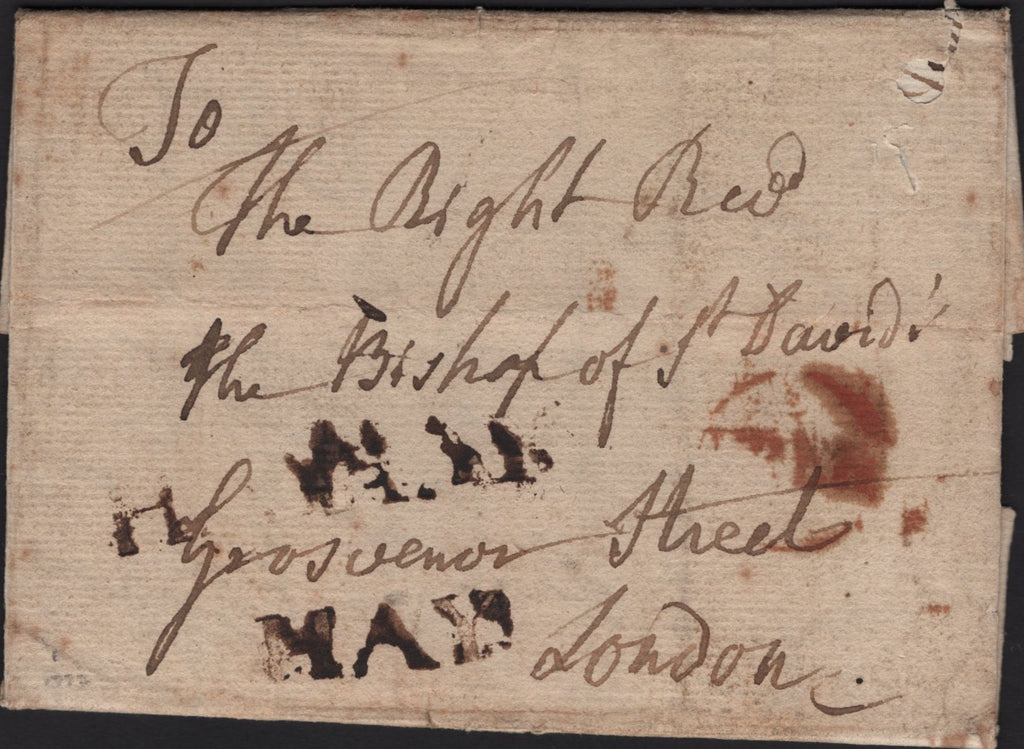 To
The Right Revd
the Bishop of St David's
H
Grosvenor Street
London